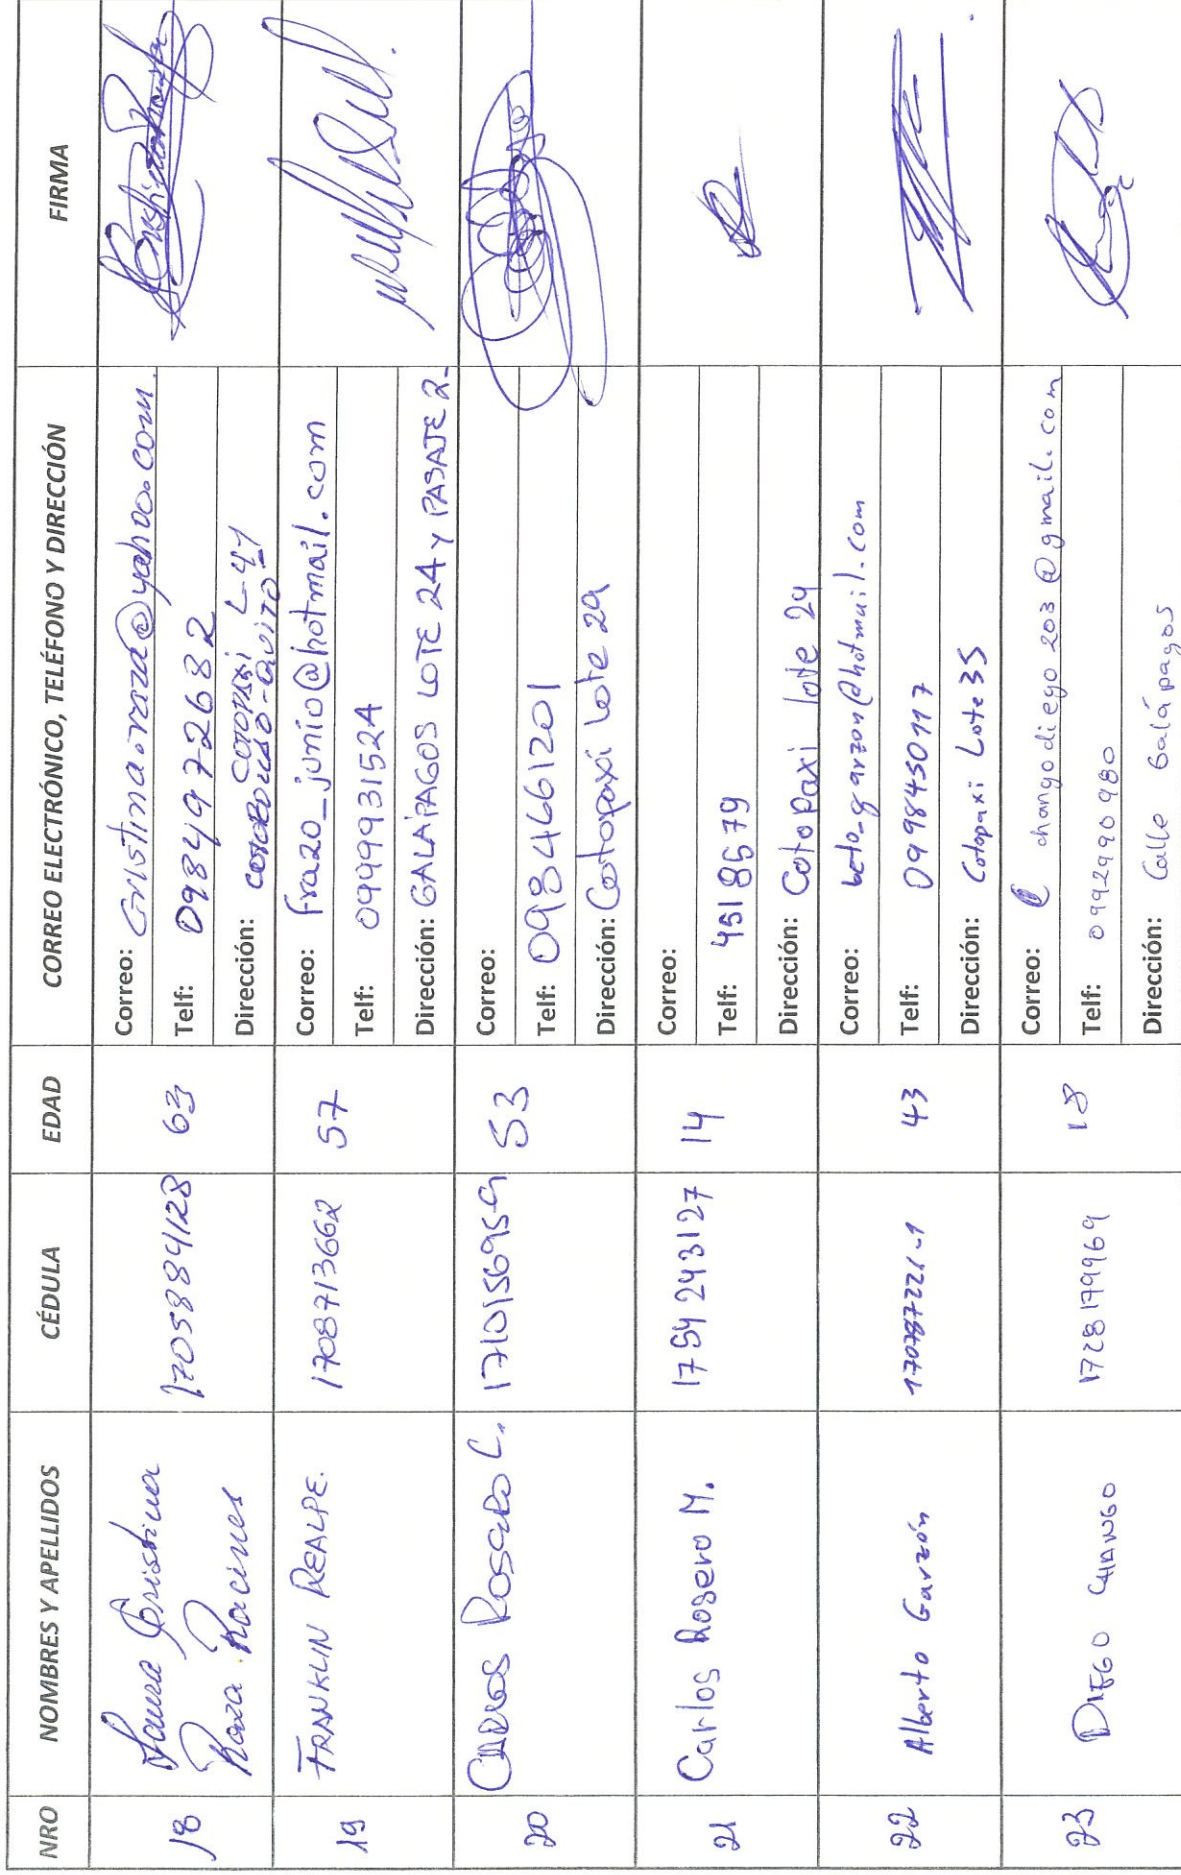 NRO NOMBRES Y APELLIDOS CÉDULA EDAD CORREO ELECTRÓNICO, TELÉFONO Y DIRECCIÓN FIRMA
18 Laura Cristina Raza Racines 1705884128 63
Correo: Cristina.raza@yahoo.com
Telf: 0984972682
Dirección: COTOPAXI L-41
COCOTOG-QUITO
19 FRANKLIN REALPE. 1708713662 57
Correo: fra220_junio@hotmail.com
Telf: 0999931524
Dirección: GALÁPAGOS LOTE 24 Y PASAJE 2-
20 CARLOS ROSERO C. 1710156959 53
Correo:
Telf: 098 4661201
Dirección: Cotopaxi Lote 29
21 Carlos Rosero M. 1754243127 14
Correo:
Telf: 4518679
Dirección: Cotopaxi lote 29
22 Alberto Garzón 170787221-1 43
Correo: beto_garzon@hotmail.com
Telf: 0998450117
Dirección: Cotopaxi Lote 35
23 DIEGO CHANGO 1728179969 18
Correo: changodiego203@gmail.com
Telf: 0992990980
Dirección: Calle Galápagos